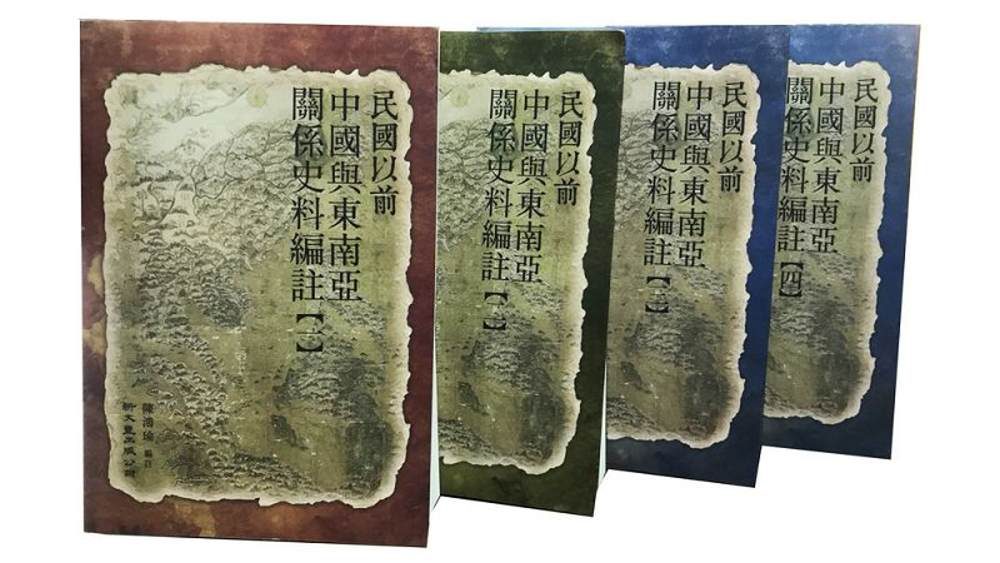 民國以前
中國與東南亞
關係史料編註【一】
陳鴻瑜 編註
新文豐出版公司
民國以前
中國與東南亞
關係史料編註【二】
民國以前
中國與東南亞
關係史料編註【三】
民國以前
中國與東南亞
關係史料編註【四】